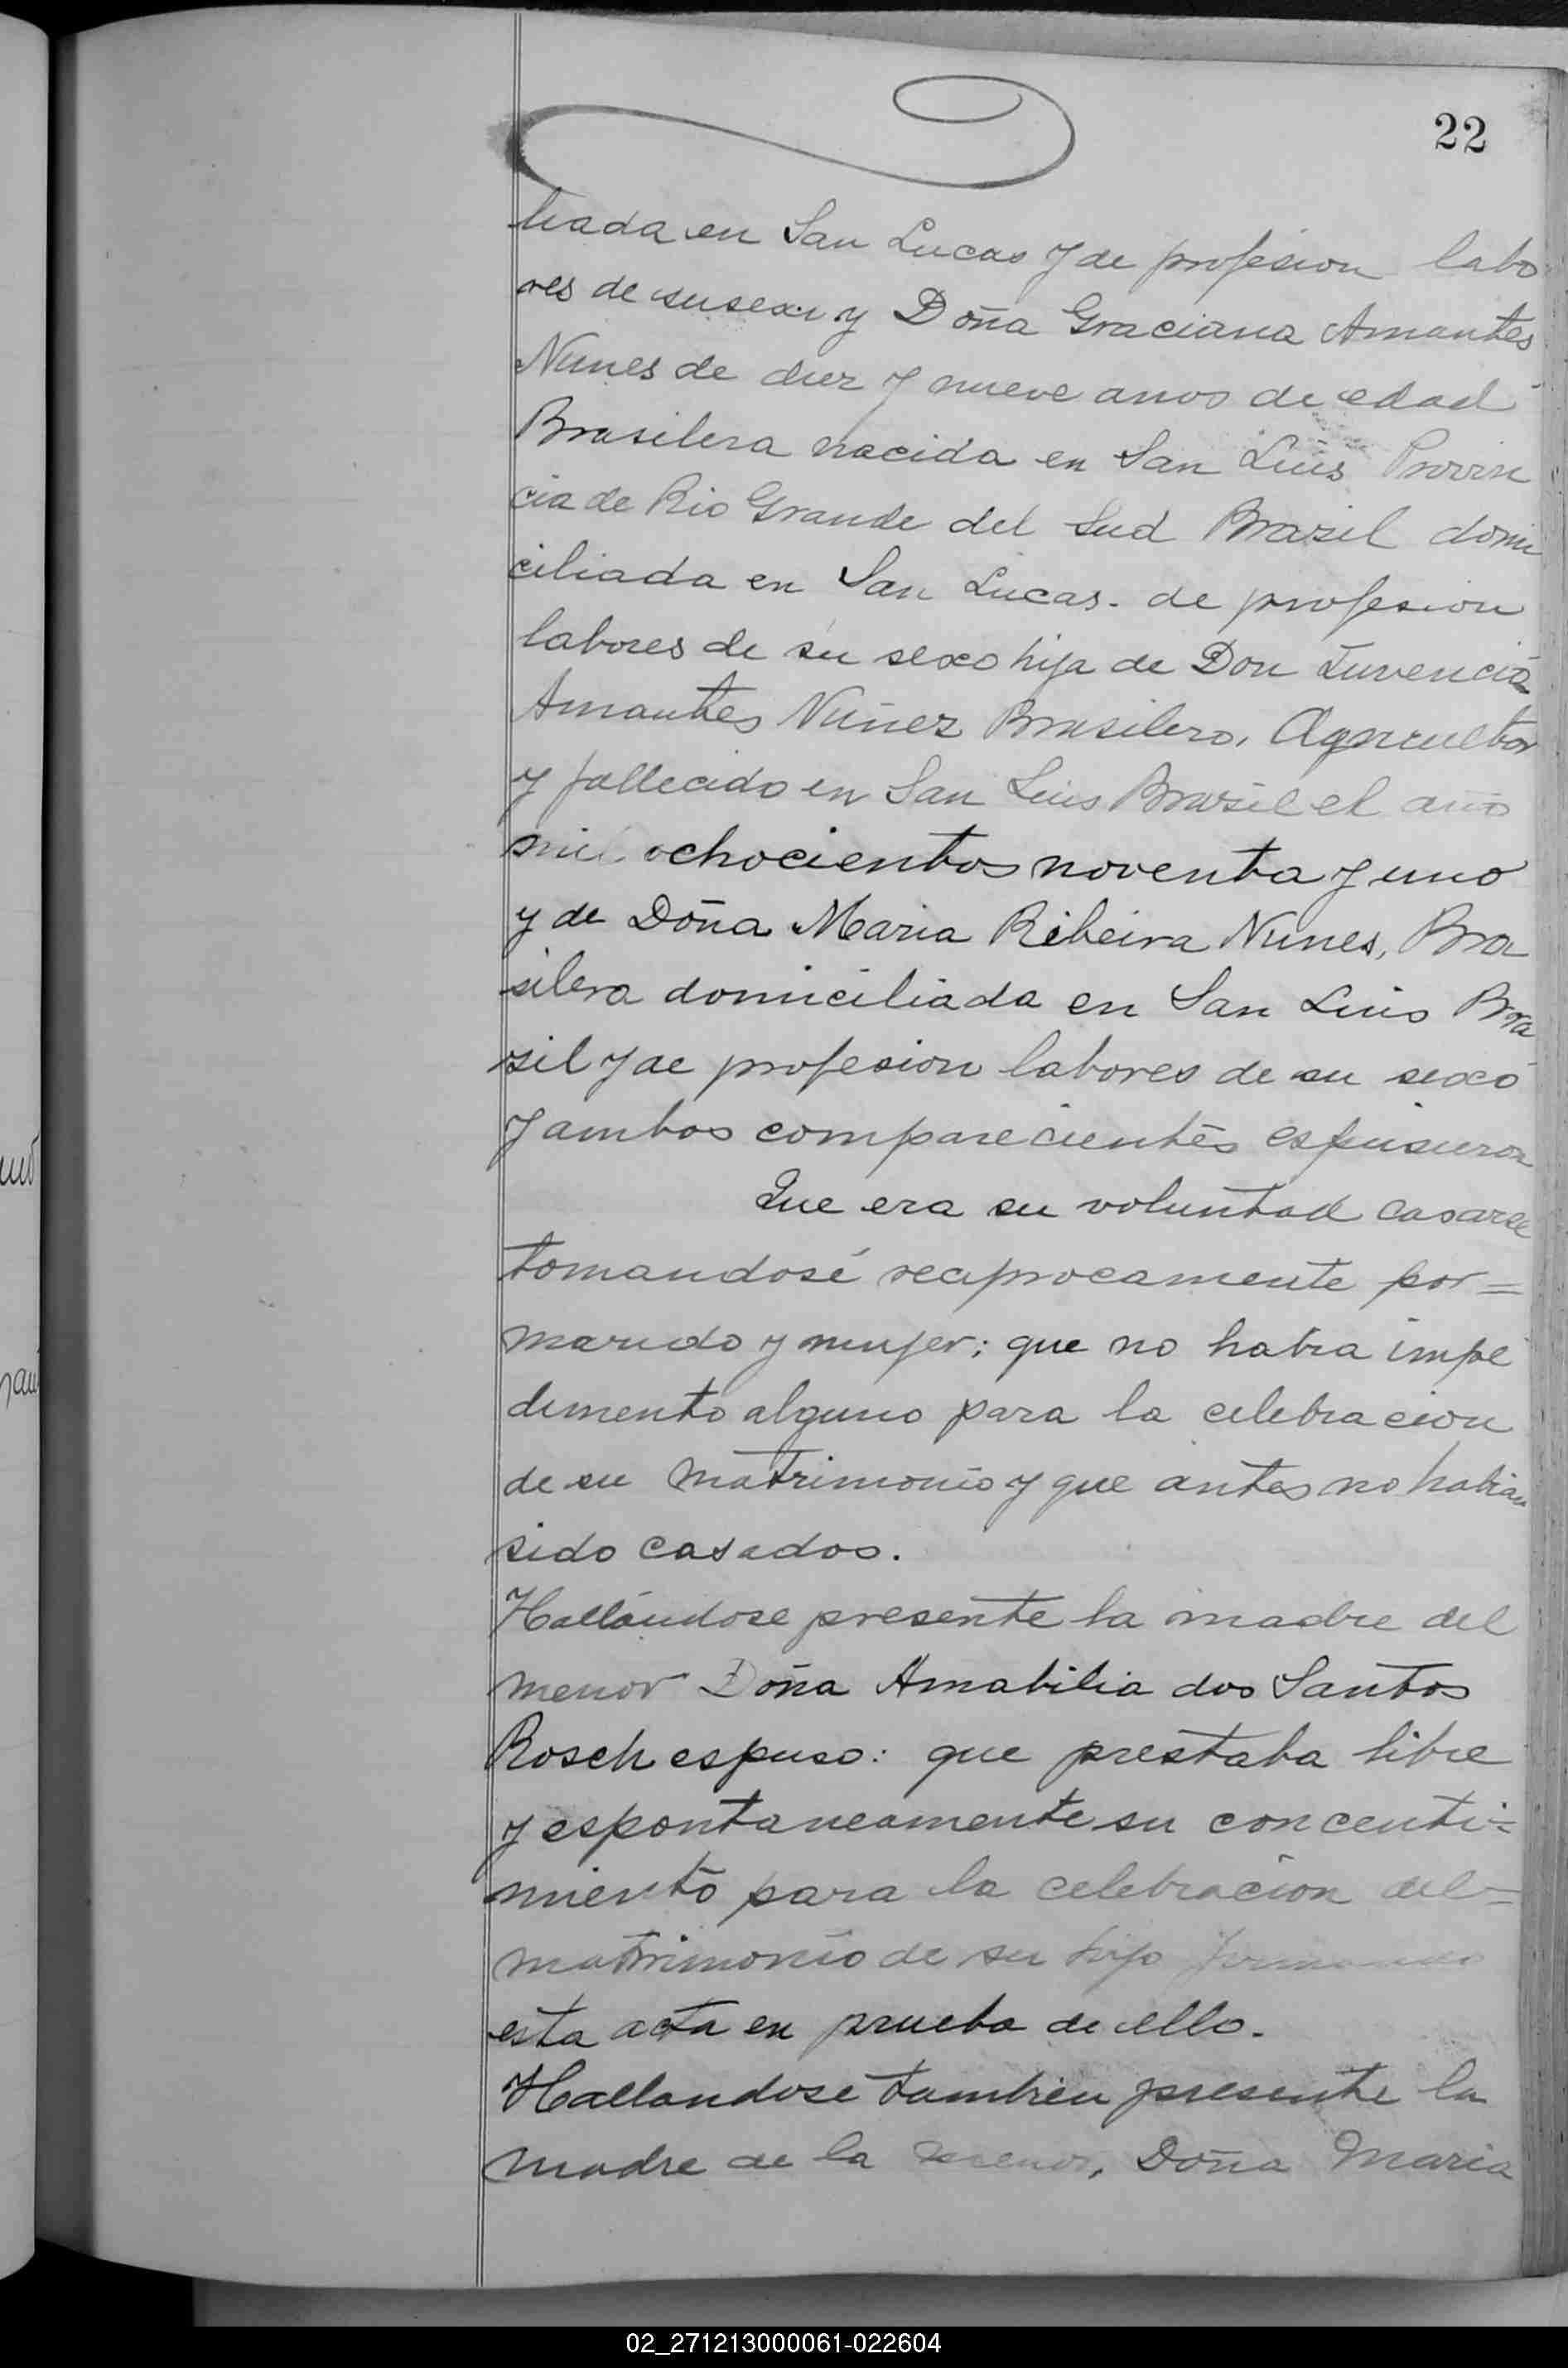 22
liada en San Lucas y de profesion labo
res de su sexo y Doña Graciana Amantes
Nunes de diez y nueve anos de edad
Brasilera nacida en San Luis Provin
cia de Rio Grande del Sud Brazil domi
ciliada en San Lucas. de profesion
labores de su sexo hija de Don Juvencio
Amantes Nunez Brasilero, Agricultor
y fallecido en San Luis Brazil el año
mil ochocientos noventa y uno
y de Doña Maria Ribeira Nunes, Bra
silera domiciliada en San Luis Bra
zil y de profesion labores de su sexo
y ambos comparecientes espusieron
Que era su voluntad casarse
tomandosé reciprocamente por=
marido y mujer; que no habia impe
dimento alguno para la celebracion
de su matrimonio y que antes no habian
sido casados.
Hallándose presente la madre del
menor Doña Amabilia dos Santos
Rosch espuso: que prestaba libre
y espontaneamente su concenti=
miento para la celebracion del=
matrimonio de su hijo
esta acta en prueba de ello.
Hallandose tambien presente la
madre de la menor, Doña Maria
02_271213000061-022604